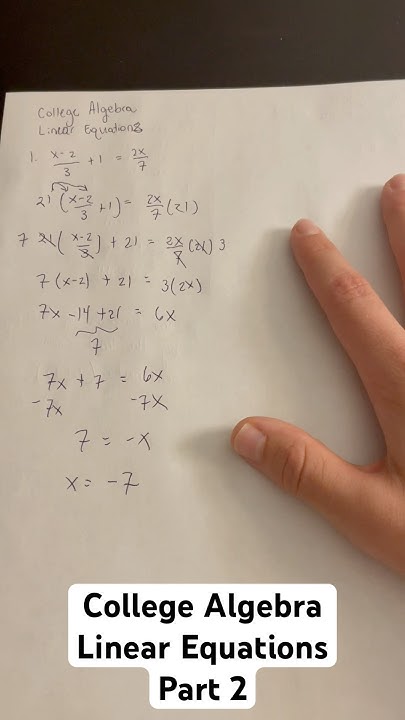 College Algebra
Linear Equations
1. x-2/3 + 1 = 2x/7
21 (x-2/3 + 1) = 2x/7 (21)
7 21 (x-2/3) + 21 = 2x/7 (21) 3
7 (x-2) + 21 = 3(2x)
7x -14 +21 = 6x
7
7x + 7 = 6x
-7x -7x
7 = -x
x = -7
College Algebra
Linear Equations
Part 2